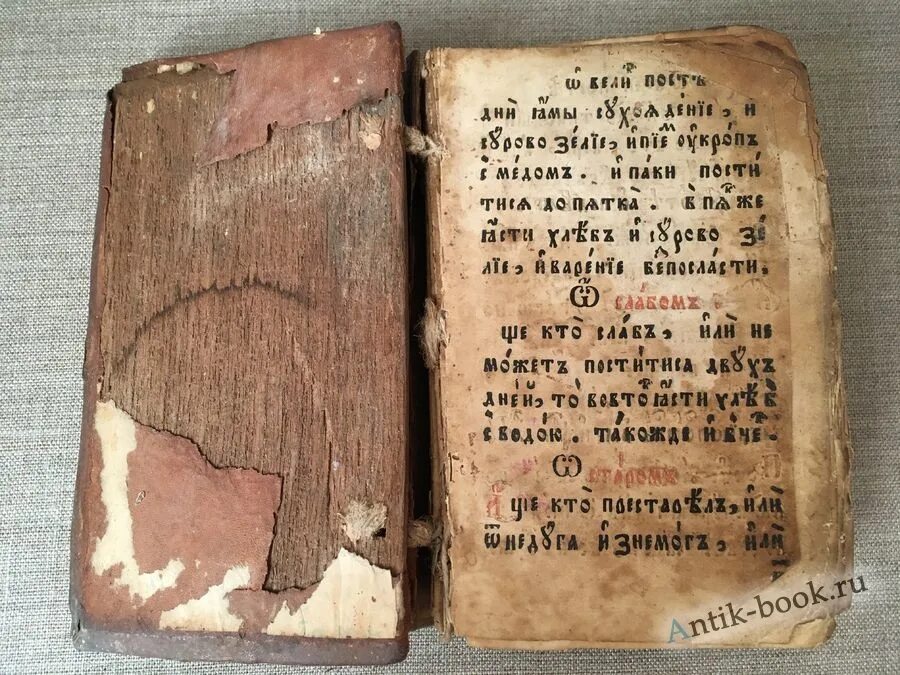 ѡ҆ вели́ⷦ҇ постѣ
дни̑ ꙗ҆мы сꙋхояде́нїе, и҆
сꙋ́рово зе́лїе, и҆пїе́ⷨ ᲂу҆кро́пъ
с ме́домъ . и҆ па́ки пости́
тися допѧтка̀ . въ пѧ́ⷦ҇же
ꙗ҆́сти хлѣ́бъ и҆ сꙋ́рово зе́
лїе, и҆ варе́нїе бе҆посла́сти.
Ѽ сла́бомъ
ще кто̀ сла́бъ, и҆лѝ не
мо́жетъ пости́тиса двꙋ́хъ
дне́й, то̀ вовто́ⷬ ꙗ҆́сти хлѣ́ⷠ
с̾ водо́ю . та́кожде и҆ в̾ че́ⷦ҇ .
Ѡ҆ ста́ромъ
А҆́ще кто̀ престарѣ́лъ, и҆лѝ
ѿ недꙋ́га и҆знемо́гъ, и҆лѝ
Antik-book.ru